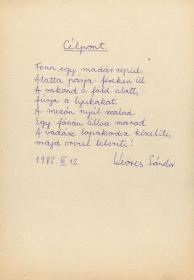 Célpont
Fenn egy madár repül.
Alatta párja fészken ül.
A vakond a föld alatt,
fúrja a lyukakat.
A mezőn nyúl szalad.
Egy fácán állva marad.
A vadász lopakodva közelít,
majd orvul leterít!
1982. III. 12. Weöres Sándor